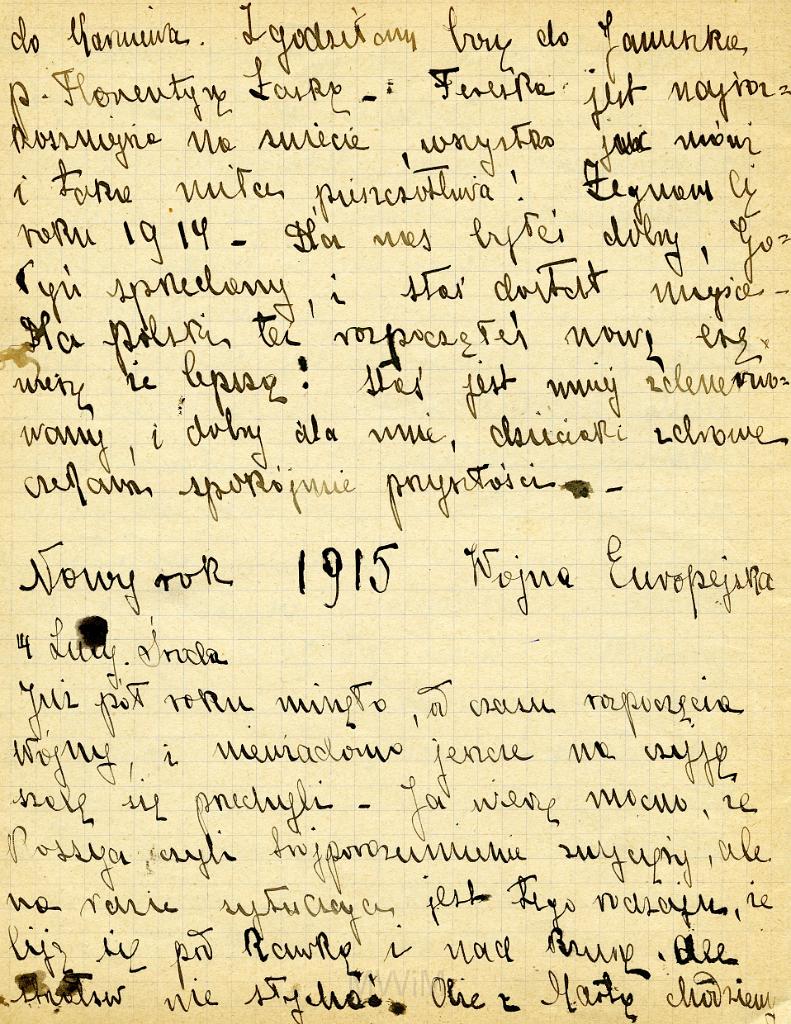 do Karniewa. Zgodziłam bonę do Januszka
p. Florentynę Łaską – Tereska jest najroz=
koszniejsza na świecie, wszystko już mówi
i taka miła pieszczotliwa! Żegnam Cię
roku 1914 – Dla nas byłeś dobry, Go=
tyń sprzedany, i Staś dostał miejsce –
Dla Polski też rozpocząłeś nową erę,
wierzę że lepszą! Staś jest mniej zdenerwo=
wany, i dobry dla mnie, dzieciaki zdrowe
czekam spokójnie przyszłości –
Nowy rok 1915 Wojna Europejska
4 Luty. Środa
Już pół roku minęło, od czasu rozpoczęcia
Wojny, i niewiadomo jeszcze na czyją
szalę się przechyli – Ja wierzę mocno, że
Rossya czyli trójporozumienie zwycięży, ale
na razie sytuacya jest tego rodzaju, że
biją się pod Rawką i nad Bzurą. Ale
strzałów nie słychać. Obie z Martą chodziemy
MWiM